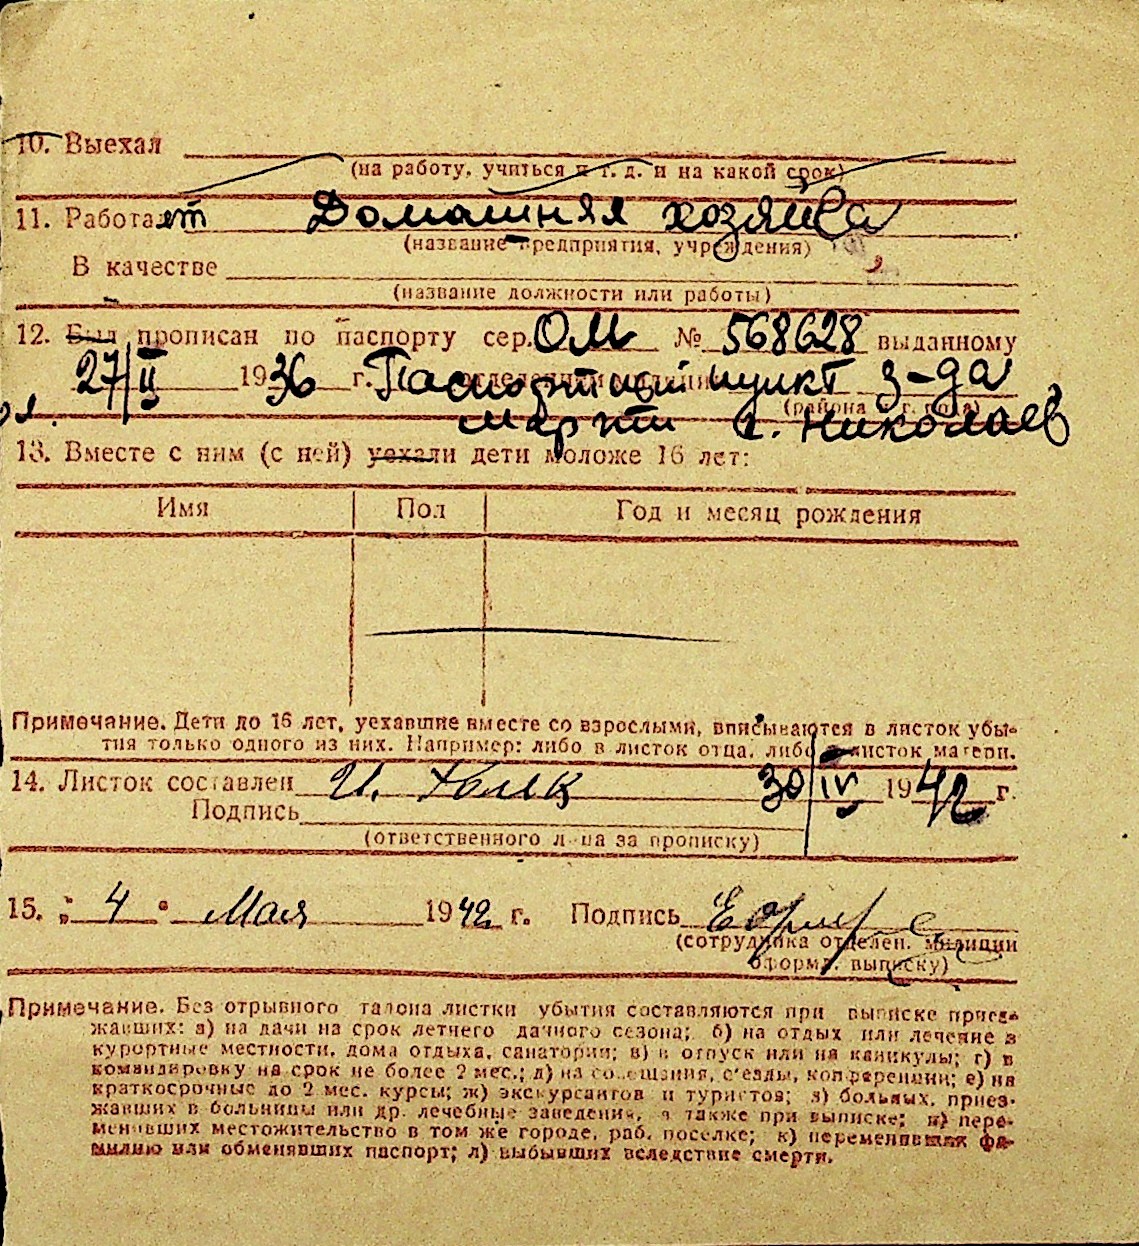 10. Выехал
(на работу, учиться и т. д. и на какой срок)
11. Работает Домашняя хозяйка
(название предприятия, учреждения)
В качестве
(название должности или работы)
12. Был прописан по паспорту сер. ОМ № 568628 выданному
27/II 1936 г. Паспортный пункт з-да
(района и города)
Марти г. Николаев
13. Вместе с ним (с ней) уехали дети моложе 16 лет:
Имя Пол Год и месяц рождения
Примечание. Дети до 16 лет, уехавшие вместе со взрослыми, вписываются в листок убы-
тия только одного из них. Например: либо в листок отца, либо в листок матери.
14. Листок составлен И. 30/IV 1942 г.
Подпись
(ответственного лица за прописку)
15. „ 4 " Мая 1942 г. Подпись
(сотрудника отделен. милиции
оформл. выписку)
Примечание. Без отрывного талона листки убытия составляются при выписке приез-
жавших: а) на дачи на срок летнего дачного сезона; б) на отдых или лечение в
курортные местности, дома отдыха, санатории; в) в отпуск или на каникулы; г) в
командировку на срок не более 2 мес.; д) на совещания, с'езды, конференции; е) на
краткосрочные до 2 мес. курсы; ж) экскурсантов и туристов; з) больных, приез-
жавших в больницы или др. лечебные заведения, а также при выписке; и) пере-
менивших местожительство в том же городе, раб. поселке; к) переменивших фа-
милию или обменявших паспорт; л) выбывших вследствие смерти.